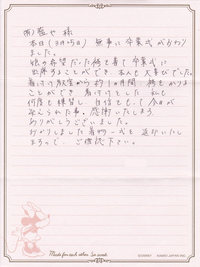 本日(3月15日) 無事に卒業式がおわり
ました。
娘の希望だった袴を着て卒業式に
出席することができ、本人も大喜びでした。
着付け教室から約1ヶ月間、袴をかりる
ことができ 着付けをした 私も
何度も練習し、自信をもって今日が
迎えられた事、感謝いたします。
ありがとうございました。
おかりしました着物一式を返却いたし
ますので、ご確認下さい。
Made for each other. So sweet.